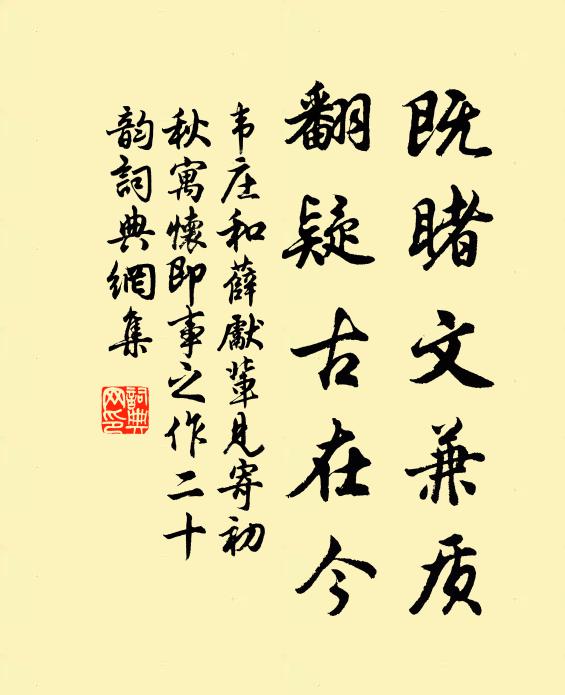 既睹文兼质
翻疑古在今
韦庄和薛獻輩見寄初
秋寓懷即事之作二十
韵詞典網集
詞典
网印